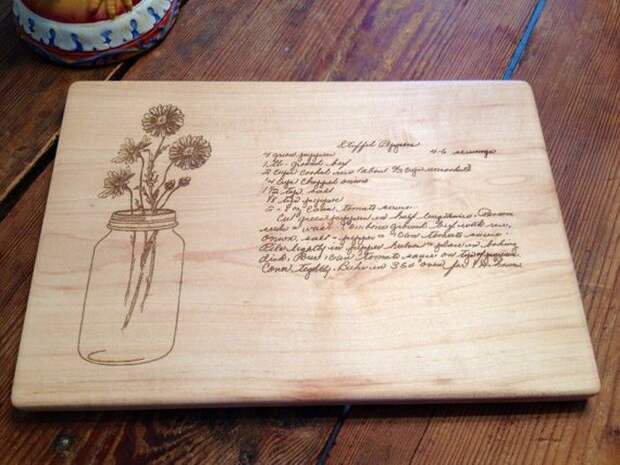 Stuffed Peppers
4-6 servings
4 green peppers
1 lb. ground beef
2 cups cooked rice (about 2/3 cup uncooked)
1/4 cup chopped onion
1 1/2 tsp. salt
1/8 tsp pepper
2 - 8 oz cans tomato sauce
Cut green peppers in half lengthwise. Remove
seeds + wash. Combine ground beef with rice,
onion, salt + pepper + 1 can tomato sauce.
Pile lightly in pepper halves + place in baking
dish. Pour 1 can tomato sauce on top of peppers.
Cover tightly. Bake in 350 oven for 1 1/2 hours